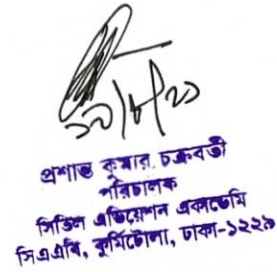 ১৯/৮/২১
প্রশান্ত কুমার চক্রবর্তী
পরিচালক
সিভিল এভিয়েশন একাডেমি
সিএএবি, কুর্মিটোলা, ঢাকা-১২২৯